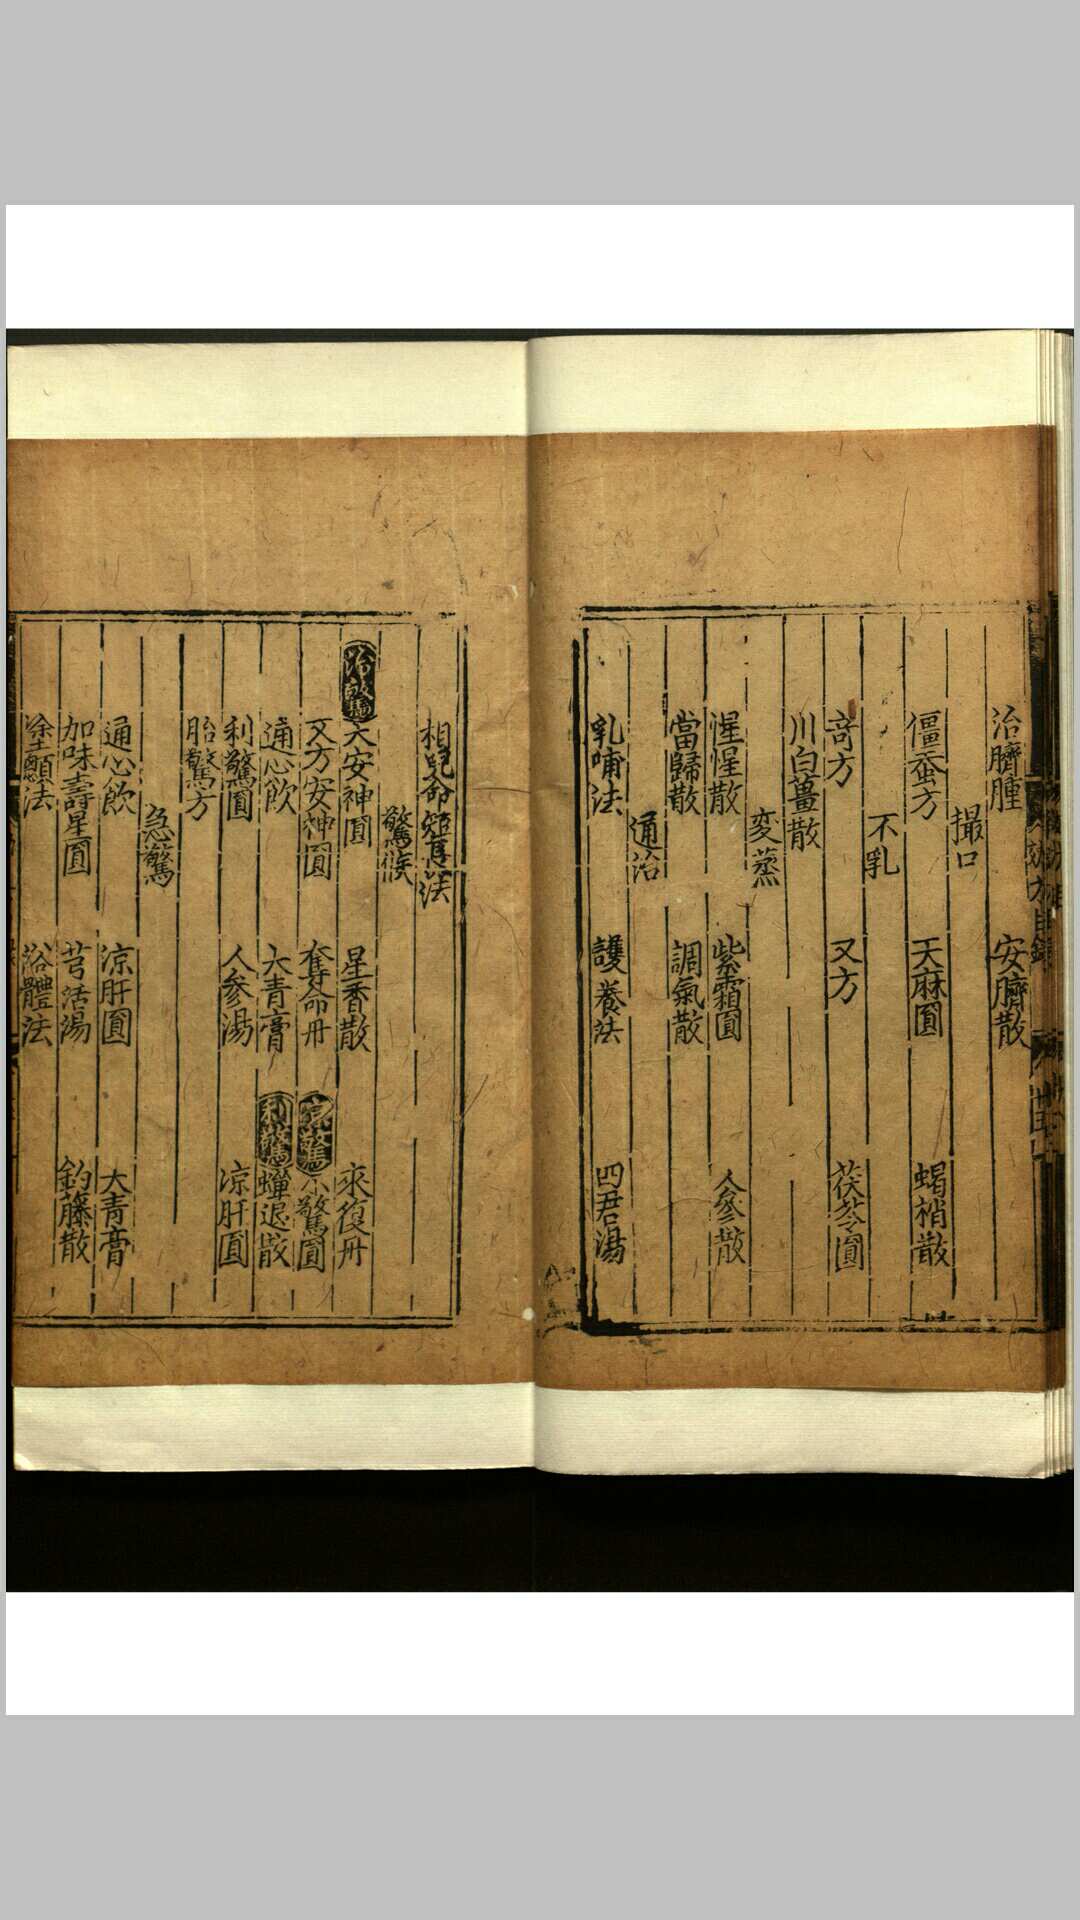 治臍腫 安臍散
撮口
僵蚕方 天麻圓 蝎梢散
不乳
竒方 又方 茯苓圓
川白薑散
変蒸
惺惺散 紫霜圓 人參散
當歸散 調氣散
通治
乳哺法 護養法 四君湯
相兒命短長法
驚候
大安神圓 星香散 來復丹
又方安神圓 奪命丹 定驚 小驚圓
通心飲 大青膏 利驚 蟬退散
利驚圓 人參湯 凉肝圓
胎驚方
急驚
通心飲 凉肝圓 大青膏
加味壽星圓 芎活湯 釣藤散
塗顖法 浴體法